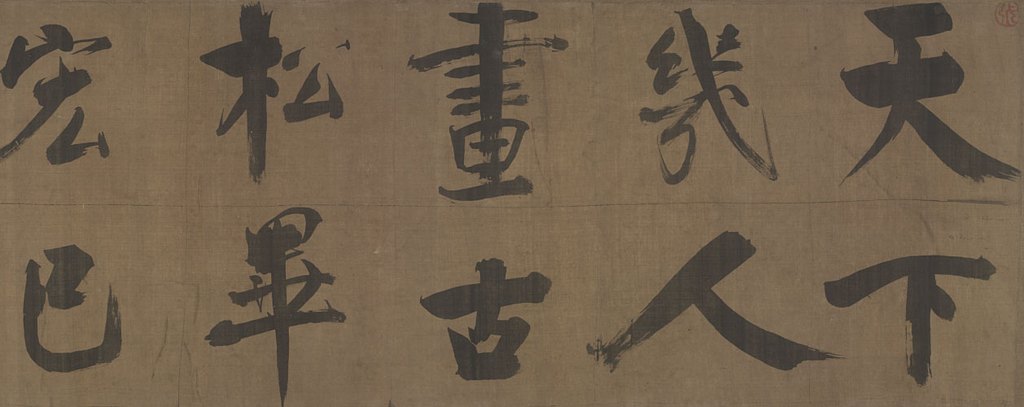 天下
幾人
畫古
松畢
宏已